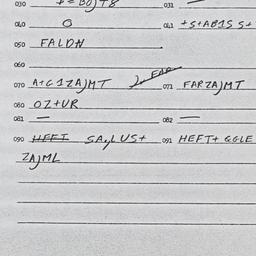 030 031
040 O 041 +S+AB1S S+
050 FALDN
060
070 A+G1ZA)MT 071 FARZA)MT
080 OZ+UR
081 — 082 —
090 HEFT SA,LUS+ 091 HEFT+ GGLE
ZA)ML